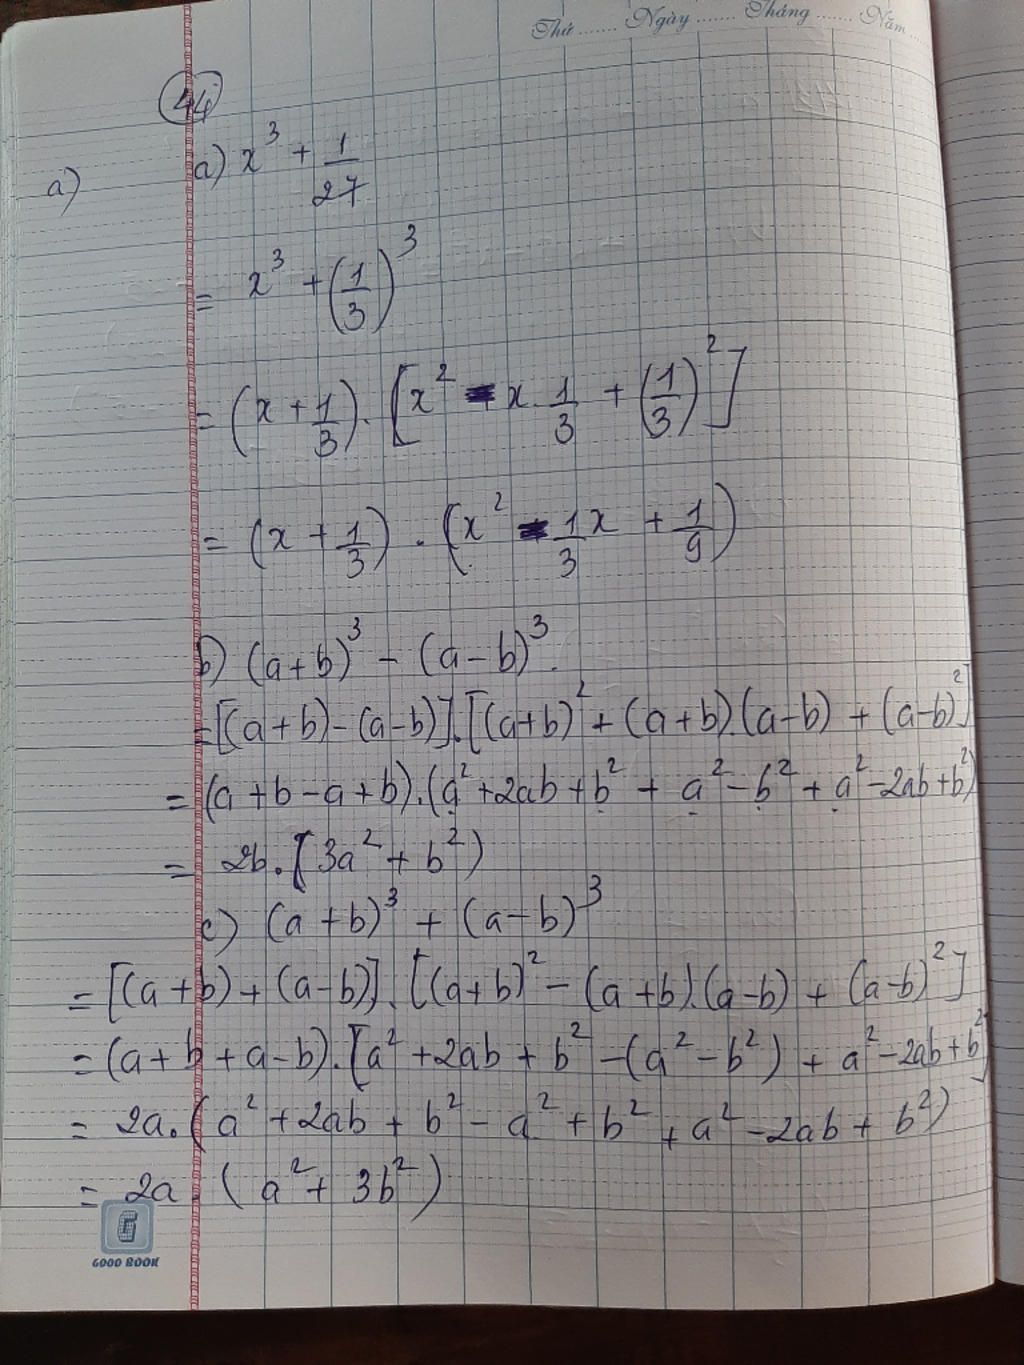 Thứ ........ Ngày ........ Tháng ........ Năm ...
44
a)
a) x³ + 1/27
= x³ + (1/3)³
= (x + 1/3) . [x² - x . 1/3 + (1/3)²]
= (x + 1/3) . (x² - 1/3 x + 1/9)
b) (a+b)³ - (a-b)³.
= [(a+b) - (a-b)] . [(a+b)² + (a+b).(a-b) + (a-b)²]
= (a+b-a+b).(a²+2ab+b² + a²-b² + a²-2ab+b²)
= 2b.(3a²+b²)
c) (a+b)³ + (a-b)³
= [(a+b) + (a-b)] . [(a+b)² - (a+b).(a-b) + (a-b)²]
= (a+b+a-b).[a²+2ab+b² - (a²-b²) + a²-2ab+b²]
= 2a.(a²+2ab+b²-a²+b²+a²-2ab+b²)
= 2a (a²+3b²)
G
GOOD BOOK